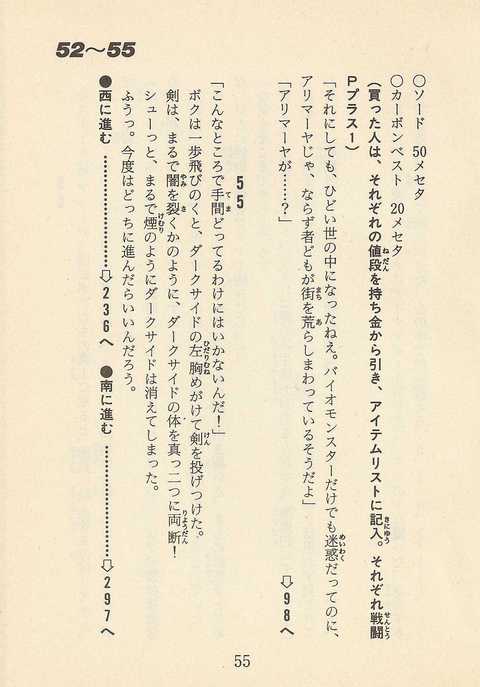 52〜55
○ソード　50メセタ
○カーボンベスト　20メセタ
（買った人は、それぞれの値段を持ち金から引き、アイテムリストに記入。それぞれ戦闘
Pプラス1）
「それにしても、ひどい世の中になったねえ。バイオモンスターだけでも迷惑だってのに、
アリマーヤじゃ、ならず者どもが街を荒らしまわっているそうだよ」
「アリマーヤが……？」　⇨98へ
55
「こんなところで手間どってるわけにはいかないんだ！」
ボクは一歩飛びのくと、ダークサイドの左胸めがけて剣を投げつけた。
剣は、まるで闇を裂くかのように、ダークサイドの体を真っ二つに両断！
シューっと、まるで煙のようにダークサイドは消えてしまった。
ふうっ。今度はどっちに進んだらいいんだろう。
●西に進む……………………⇨236へ　●南に進む……………………⇨297へ
55